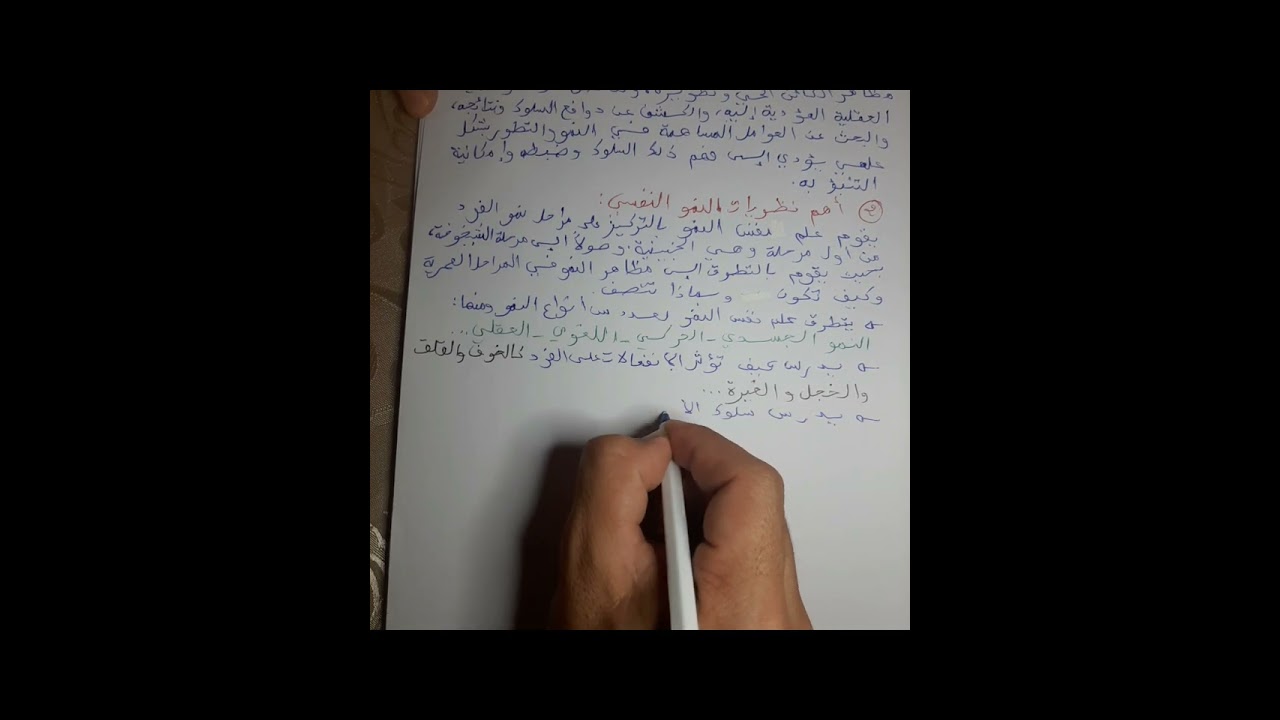 مظاهر الكائن الحي وتطويره،
العقلية المؤدية إليه، والكشف عن دوافع السلوك ونتائجه،
والبحث عن العوامل المساهمة في النمو والتطور بشكل
علمي يؤدي إلى فهم ذلك السلوك وضبطه وإمكانية
التنبؤ به.
أهم نظريات النمو النفسي:
يقوم علم نفس النمو بالتركيز على مراحل نمو الفرد
من أول مرحلة وهي الجنينية. وصولاً إلى مرحلة الشيخوخة،
بحيث يقوم بالتطرق إلى مظاهر النمو في المراحل العمرية
وكيف تكون وبماذا تتصف.
يتطرق علم نفس النمو لعدد من أنواع النمو ومنها:
النمو الجسدي - الحركي - اللغوي - العقلي...
يدرس كيف تؤثر الانفعالات على الفرد كالخوف والقلق
والخجل والغيرة...
يدرس سلوك الا